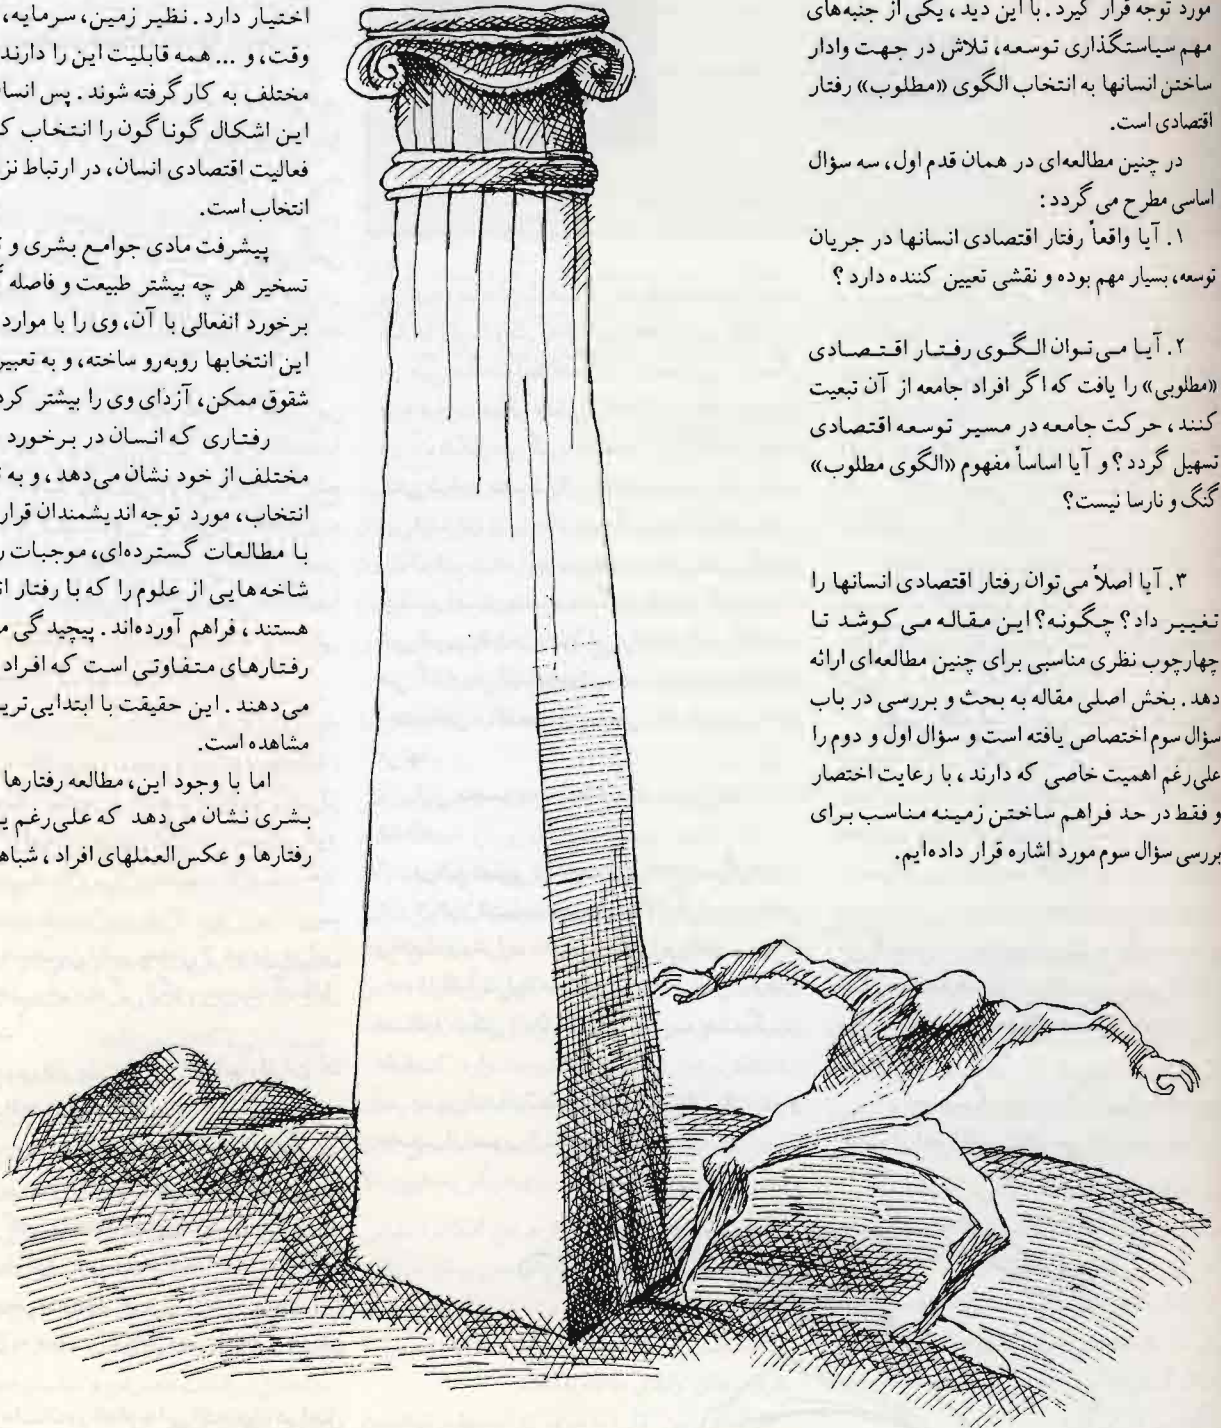 مورد توجه قرار گیرد. با این دید، یکی از جنبه‌های
مهم سیاستگذاری توسعه، تلاش در جهت وادار
ساختن انسانها به انتخاب الگوی «مطلوب» رفتار
اقتصادی است.
در چنین مطالعه‌ای در همان قدم اول، سه سؤال
اساسی مطرح می گردد:
۱. آیا واقعاً رفتار اقتصادی انسانها در جریان
توسعه، بسیار مهم بوده و نقشی تعیین کننده دارد؟
۲. آیا می‌توان الگوی رفتار اقتصادی
«مطلوبی» را یافت که اگر افراد جامعه از آن تبعیت
کنند، حرکت جامعه در مسیر توسعه اقتصادی
تسهیل گردد؟ و آیا اساساً مفهوم «الگوی مطلوب»
گنگ و نارسا نیست؟
۳. آیا اصلاً می‌توان رفتار اقتصادی انسانها را
تغییر داد؟ چگونه؟ این مقاله می کوشد تا
چهارچوب نظری مناسبی برای چنین مطالعه‌ای ارائه
دهد. بخش اصلی مقاله به بحث و بررسی در باب
سؤال سوم اختصاص یافته است و سؤال اول و دوم را
علی‌رغم اهمیت خاصی که دارند، با رعایت اختصار
و فقط در حد فراهم ساختن زمینه مناسب برای
بررسی سؤال سوم مورد اشاره قرار داده‌ایم.
اختیار دارد. نظیر زمین، سرمایه،
وقت، و ... همه قابلیت این را دارند
مختلف به کار گرفته شوند. پس
این اشکال گوناگون را انتخاب
فعالیت اقتصادی انسان، در ارتباط
انتخاب است.
پیشرفت مادی جوامع بشری و
تسخیر هر چه بیشتر طبیعت و فاصله
برخورد انفعالی با آن، وی را با موارد
این انتخابها روبه‌رو ساخته، و به تعبیر
شقوق ممکن، آزدای وی را بیشتر
رفتاری که انسان در برخورد
مختلف از خود نشان می‌دهد، و به
انتخاب، مورد توجه اندیشمندان قرار
با مطالعات گسترده‌ای، موجبات
شاخه‌هایی از علوم را که با رفتار
هستند، فراهم آورده‌اند. پیچیدگی
رفتارهای متفاوتی است که افراد
می‌دهند. این حقیقت با ابتدایی
مشاهده است.
اما با وجود این، مطالعه رفتارها
بشری نشان می‌دهد که علی‌رغم
رفتارها و عکس‌العملهای افراد،